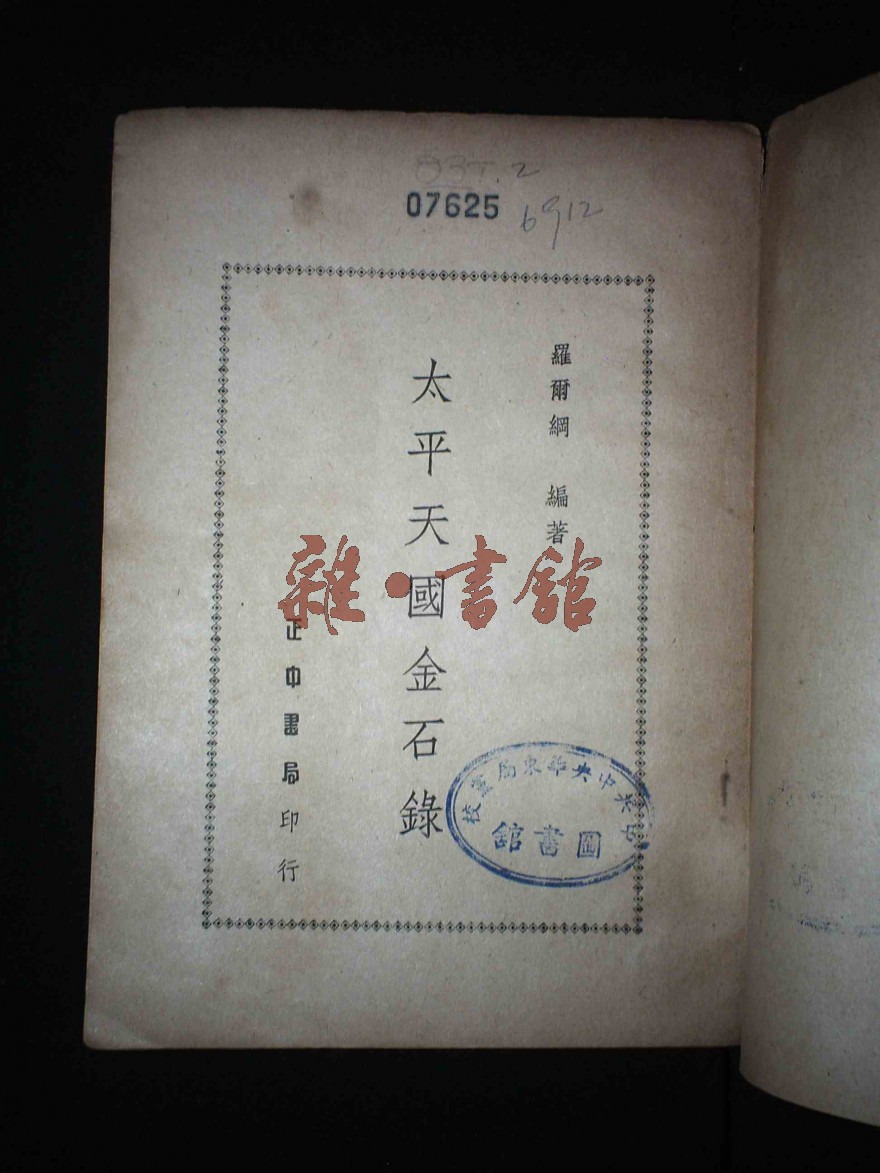 07625
6912
羅爾綱 編著
太平天國金石錄
正中書局印行
雜·書館
中共中央華東局黨校
圖書館